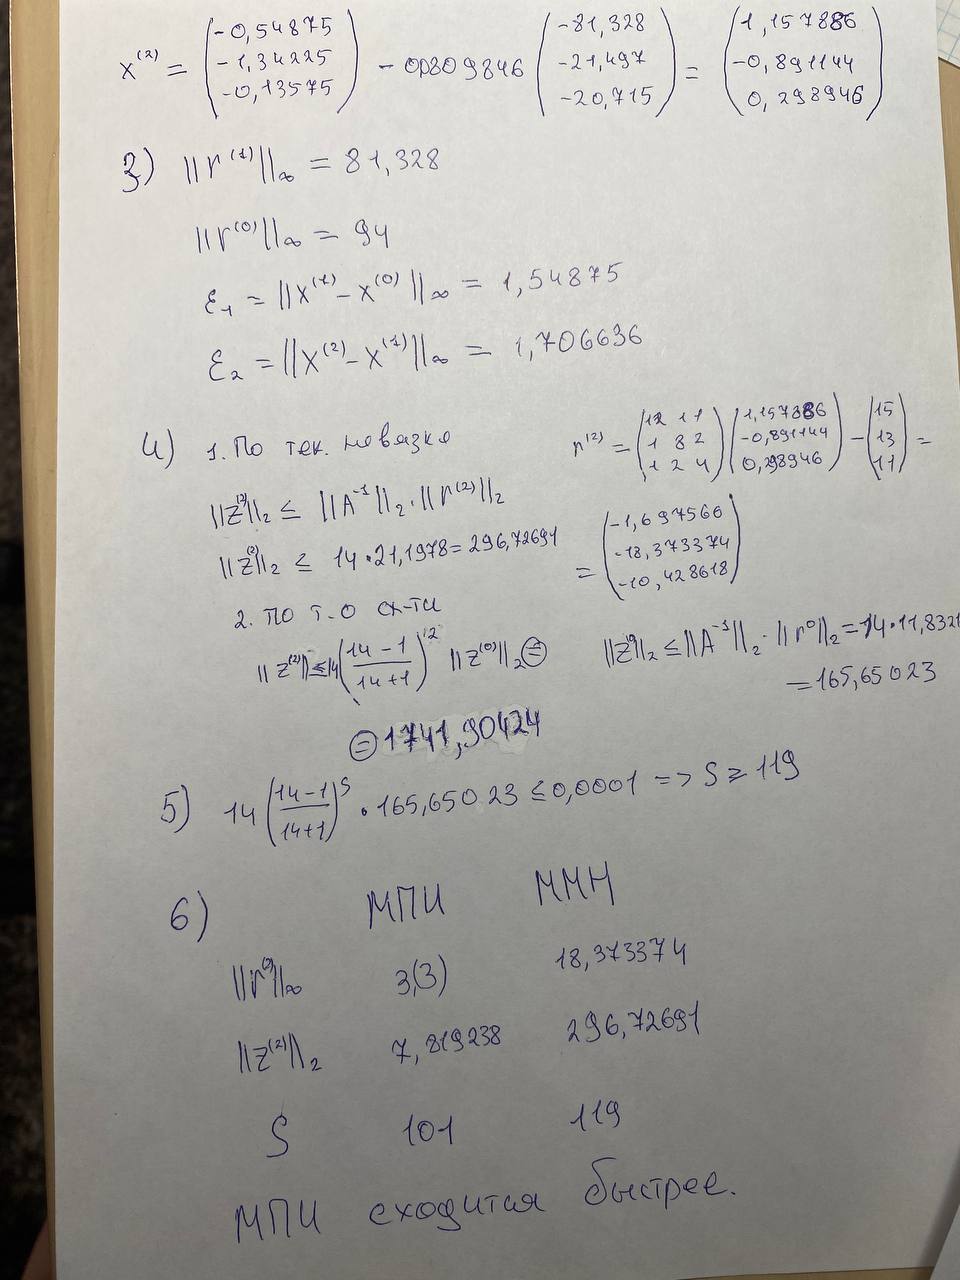 x⁽²⁾ = (-0,54875; -1,34225; -0,13575) - 0,0209846 (-81,328; -21,497; -20,715) = (1,157886; -0,891144; 0,298946)
3) ||r⁽¹⁾||∞ = 81,328
||r⁽⁰⁾||∞ = 94
ε₁ = ||x⁽¹⁾-x⁽⁰⁾||∞ = 1,54875
ε₂ = ||x⁽²⁾-x⁽¹⁾||∞ = 1,706636
4) 1. По тек. невязке
r⁽²⁾ = (12 1 1; 1 8 2; 1 2 4) (1,157886; -0,891144; 0,298946) - (15; 13; 11) =
= (-1,697566; -18,373374; -10,428618)
||z⁽²⁾||₂ ≤ ||A⁻¹||₂·||r⁽²⁾||₂
||z⁽²⁾||₂ ≤ 14·21,1978=296,72691
2. по т.о сх-ти
||z⁽²⁾|| ≤ 14 ((14-1)/(14+1))² ||z⁽⁰⁾||₂ =
||z⁰||₂ ≤ ||A⁻¹||₂·||r⁰||₂ = 14·11,8321
= 165,65023
= 1741,90424
5) 14 ((14-1)/(14+1))ˢ · 165,65023 ≤ 0,0001 => S ≥ 119
6) МПИ ММН
||r⁽²⁾||∞ 3,(3) 18,373374
||z⁽²⁾||₂ 7,819238 296,72691
S 101 119
МПИ сходится быстрее.